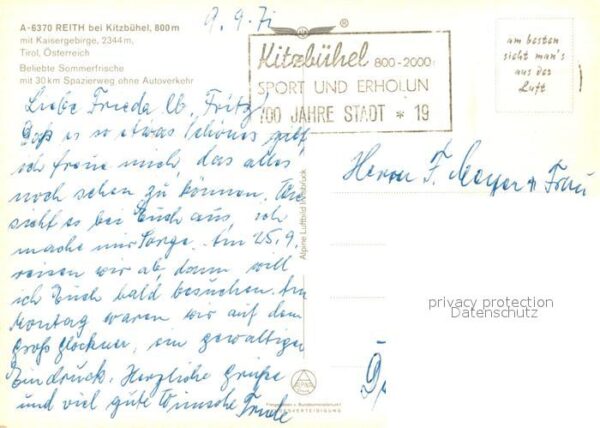 A-6370 REITH bei Kitzbühel, 800m
mit Kaisergebirge, 2344m,
Tirol, Österreich
Beliebte Sommerfrische
mit 30km Spazierweg ohne Autoverkehr
9.9.71
Kitzbühel 800-2000
SPORT UND ERHOLUN
700 JAHRE STADT * 19
am besten
sieht man's
aus der
Luft
Liebe Frieda lb. Fritz!
Daß es so etwas Schönes gibt
ich freue mich, das alles
noch sehen zu können. Wie
sieht es bei Euch aus, ich
mache mir Sorge. Am 25.9.
reisen wir ab, dann will
ich Euch bald besuchen. Am
Montag waren wir auf dem
Großglockner, ein gewaltiger
Eindruck. Herzliche Grüße
und viel gute Wünsche
Herrn F. Meyer u Frau
Alpine Luftbild Innsbruck
privacy protection
Datenschutz